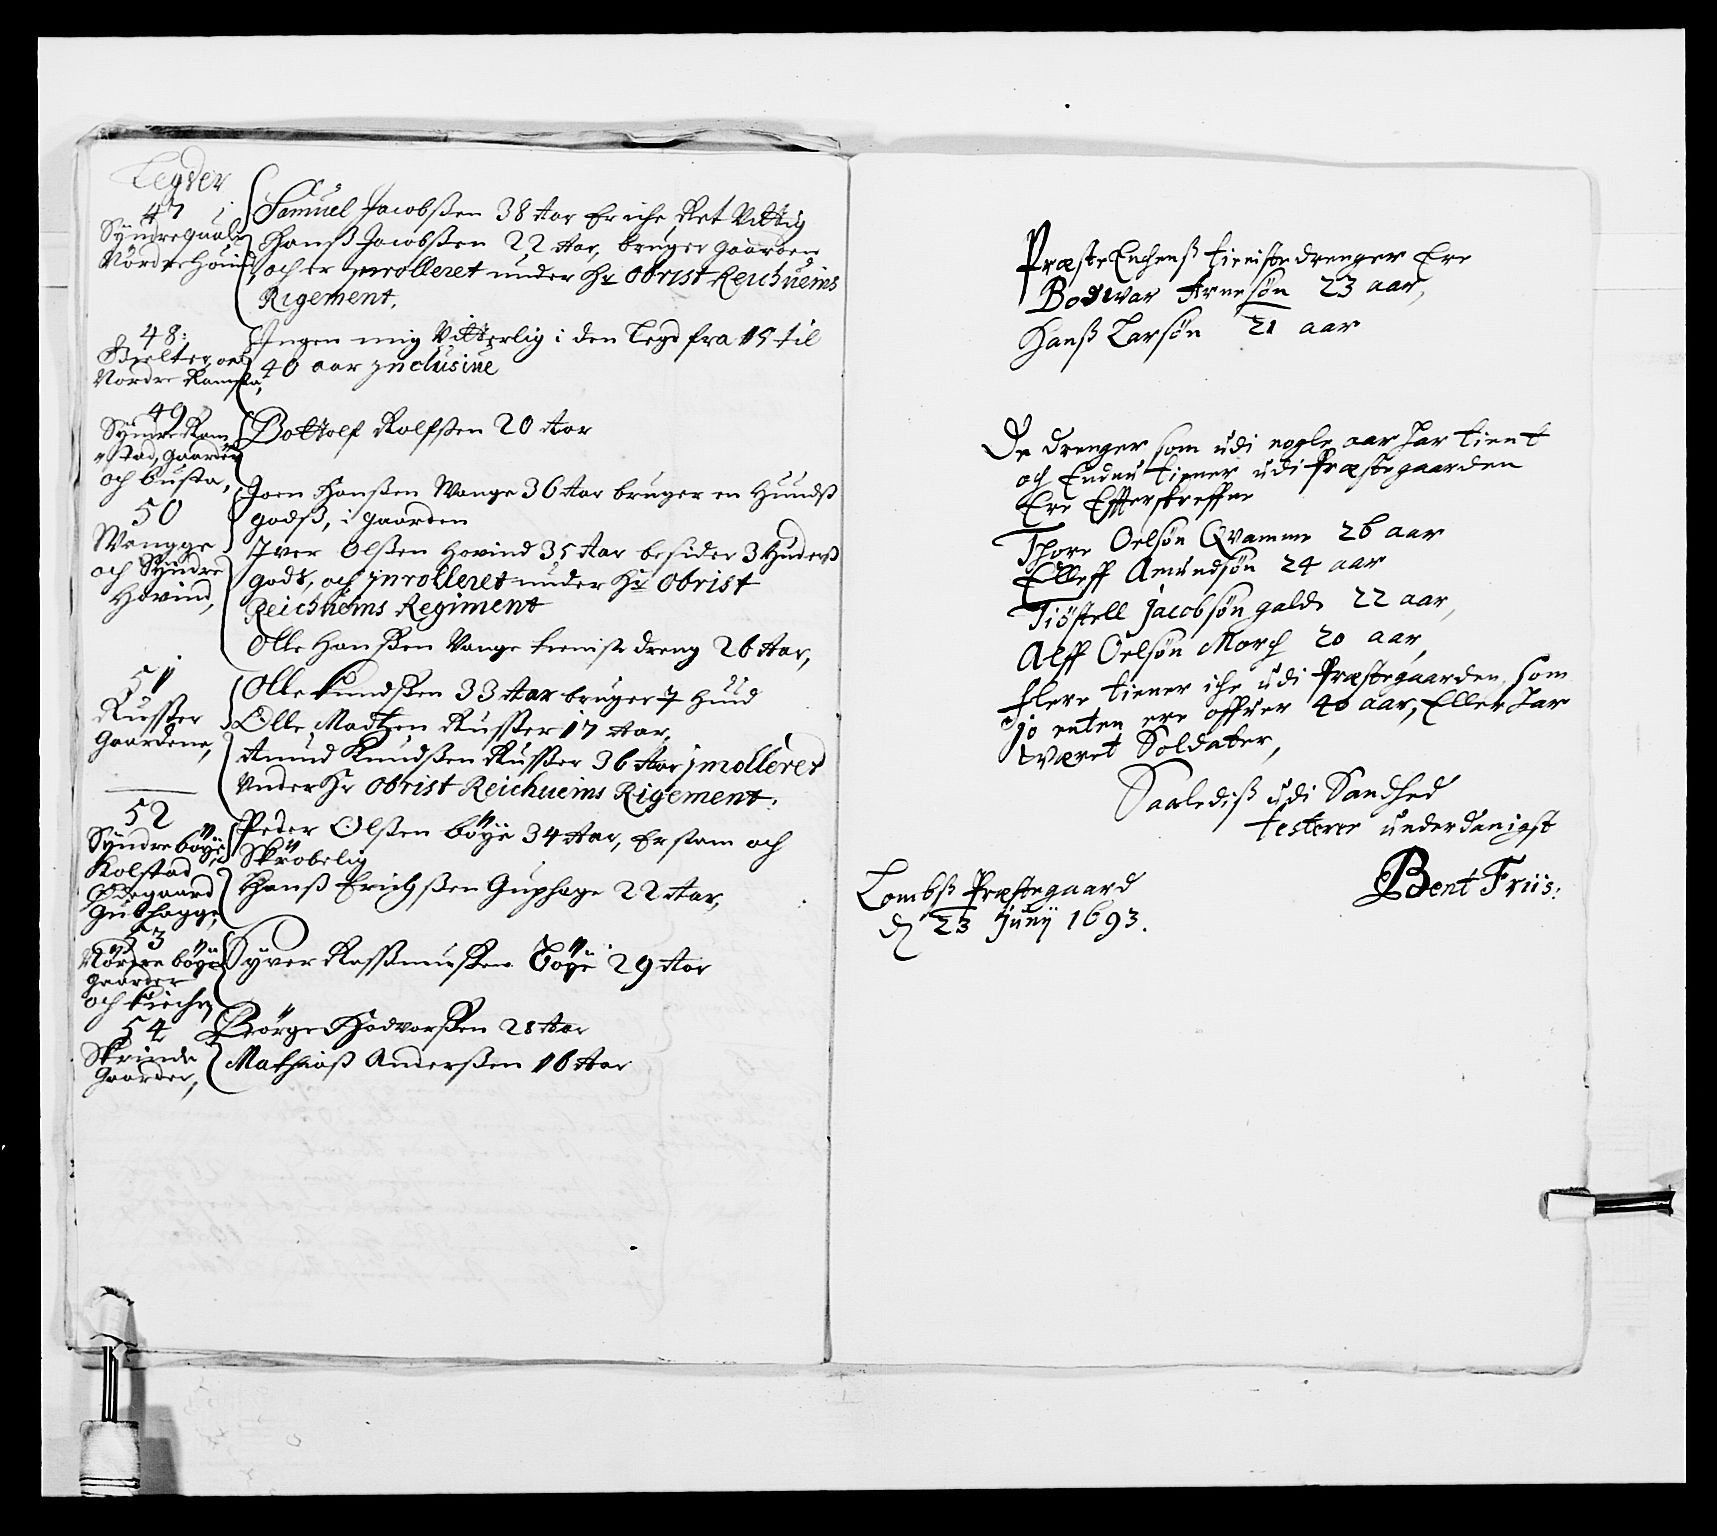 Legder
47
Syndre quale
Nordre Houind
Samuel Jacobßen 38 Aar Er iche Ret Vittig
Hanß Jacobßen 22 Aar, bruger gaarden
och er Jnrolleret under Hr Obrist Reichueins
Rigement,
48:
Bielter och
Nordre Ramsta,
Jngen mig Vitterlig i den Legd fra 15 til
40 aar Jnclusiue
49
Syndre Ram
stad, gaarder
och busta,
Bottolf Rolfßen 20 Aar
50
Wangge
och Syndre
Hovind,
Joen Hanßen Wange 36 Aar bruger en Hundß
godß, i gaarden
Iver Olßen Hovind 35 Aar besider 3 Huders
gods, och Jnrolleret under Hr Obrist
Reichueins Regiment
Olle Hanßen Vange tieniste dreng 26 Aar,
51
Rusßer
Gaardene,
Olle Knudßen 33 Aar bruger 7 Hud
Olle Madtzen Rusßer 17 Aar,
Amund Knudßen Rusßer 36 Aar jnrolleret
Vnder Hr Obrist Reichueins Rigement.
52
Syndre böye,
Kolstad
Ødegaard
Gubhagge,
Peder Olßen böye 34 Aar, Er stam och
Skröbelig
Hanß Erichßen Guphage 22 Aar,
53
Nordre böye
gaarder
och Kieche,
Syver Rasßmusßen Böye 29 Aar
54
Skrinde
Gaarder,
Börge Hodvorßen 28 Aar
Mathiaß Anderßen 16 Aar
Præste Enchenß tieniste drenger Ere
Bodwar Arnesøn 23 aar,
Hanß Larsøn 21 aar
De drenger som udi nogle aar har tient
och Endnu tiener udi Præstegaarden
Ere Efterskreffne
Thore Oelsøn Qvamme 26 aar
Elleff Amundsøn 24 aar
Tiøstell Jacobsøn galde 22 aar,
Alff Oelsøn Morch 20 aar,
flere tiener iche udi Præstegaarden, som
jo enten ere offuer 40 aar, Eller har
wæret Soldater,
Saaledeß udi Sandhed
testerer underdanigst
Bent Friis:
Lombß Præstegaard
d 23 Junij 1693.